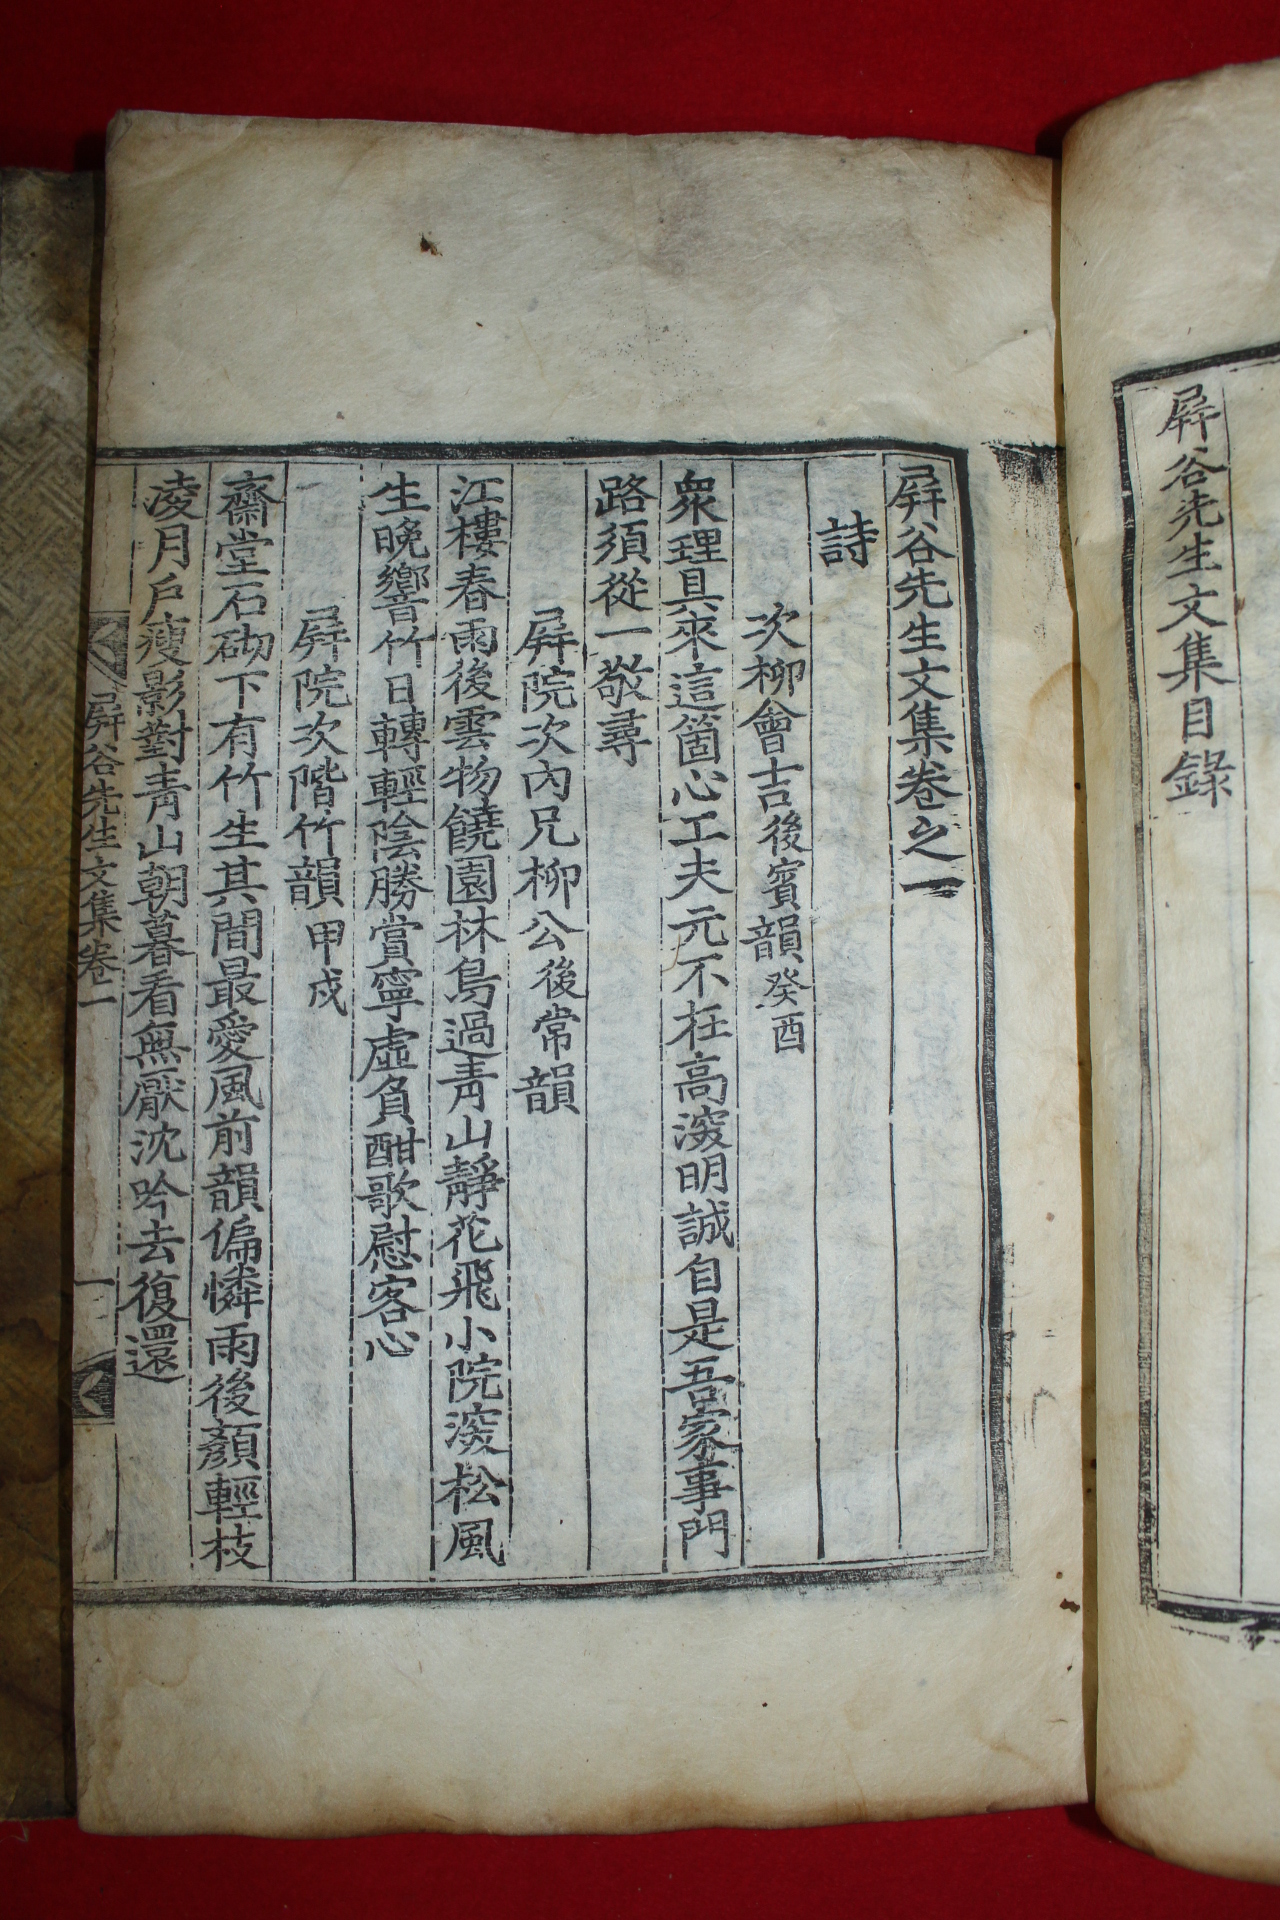 屛谷先生文集目錄
屛谷先生文集卷之一
詩
次柳會吉後賓韻 癸酉
衆理具來這箇心工夫元不枉高深明誠自是吾家事門
路須從一敬尋
屛院次內兄柳公後常韻
江樓春雨後雲物饒園林鳥過靑山靜花飛小院深松風
生晩響竹日轉輕陰勝賞寧虛負酣歌慰客心
屛院次階竹韻 甲戌
齋堂石砌下有竹生其間最愛風前韻偏憐雨後顏輕枝
凌月戶瘦影對靑山朝暮看無厭沈吟去復還
屛谷先生文集卷一
一